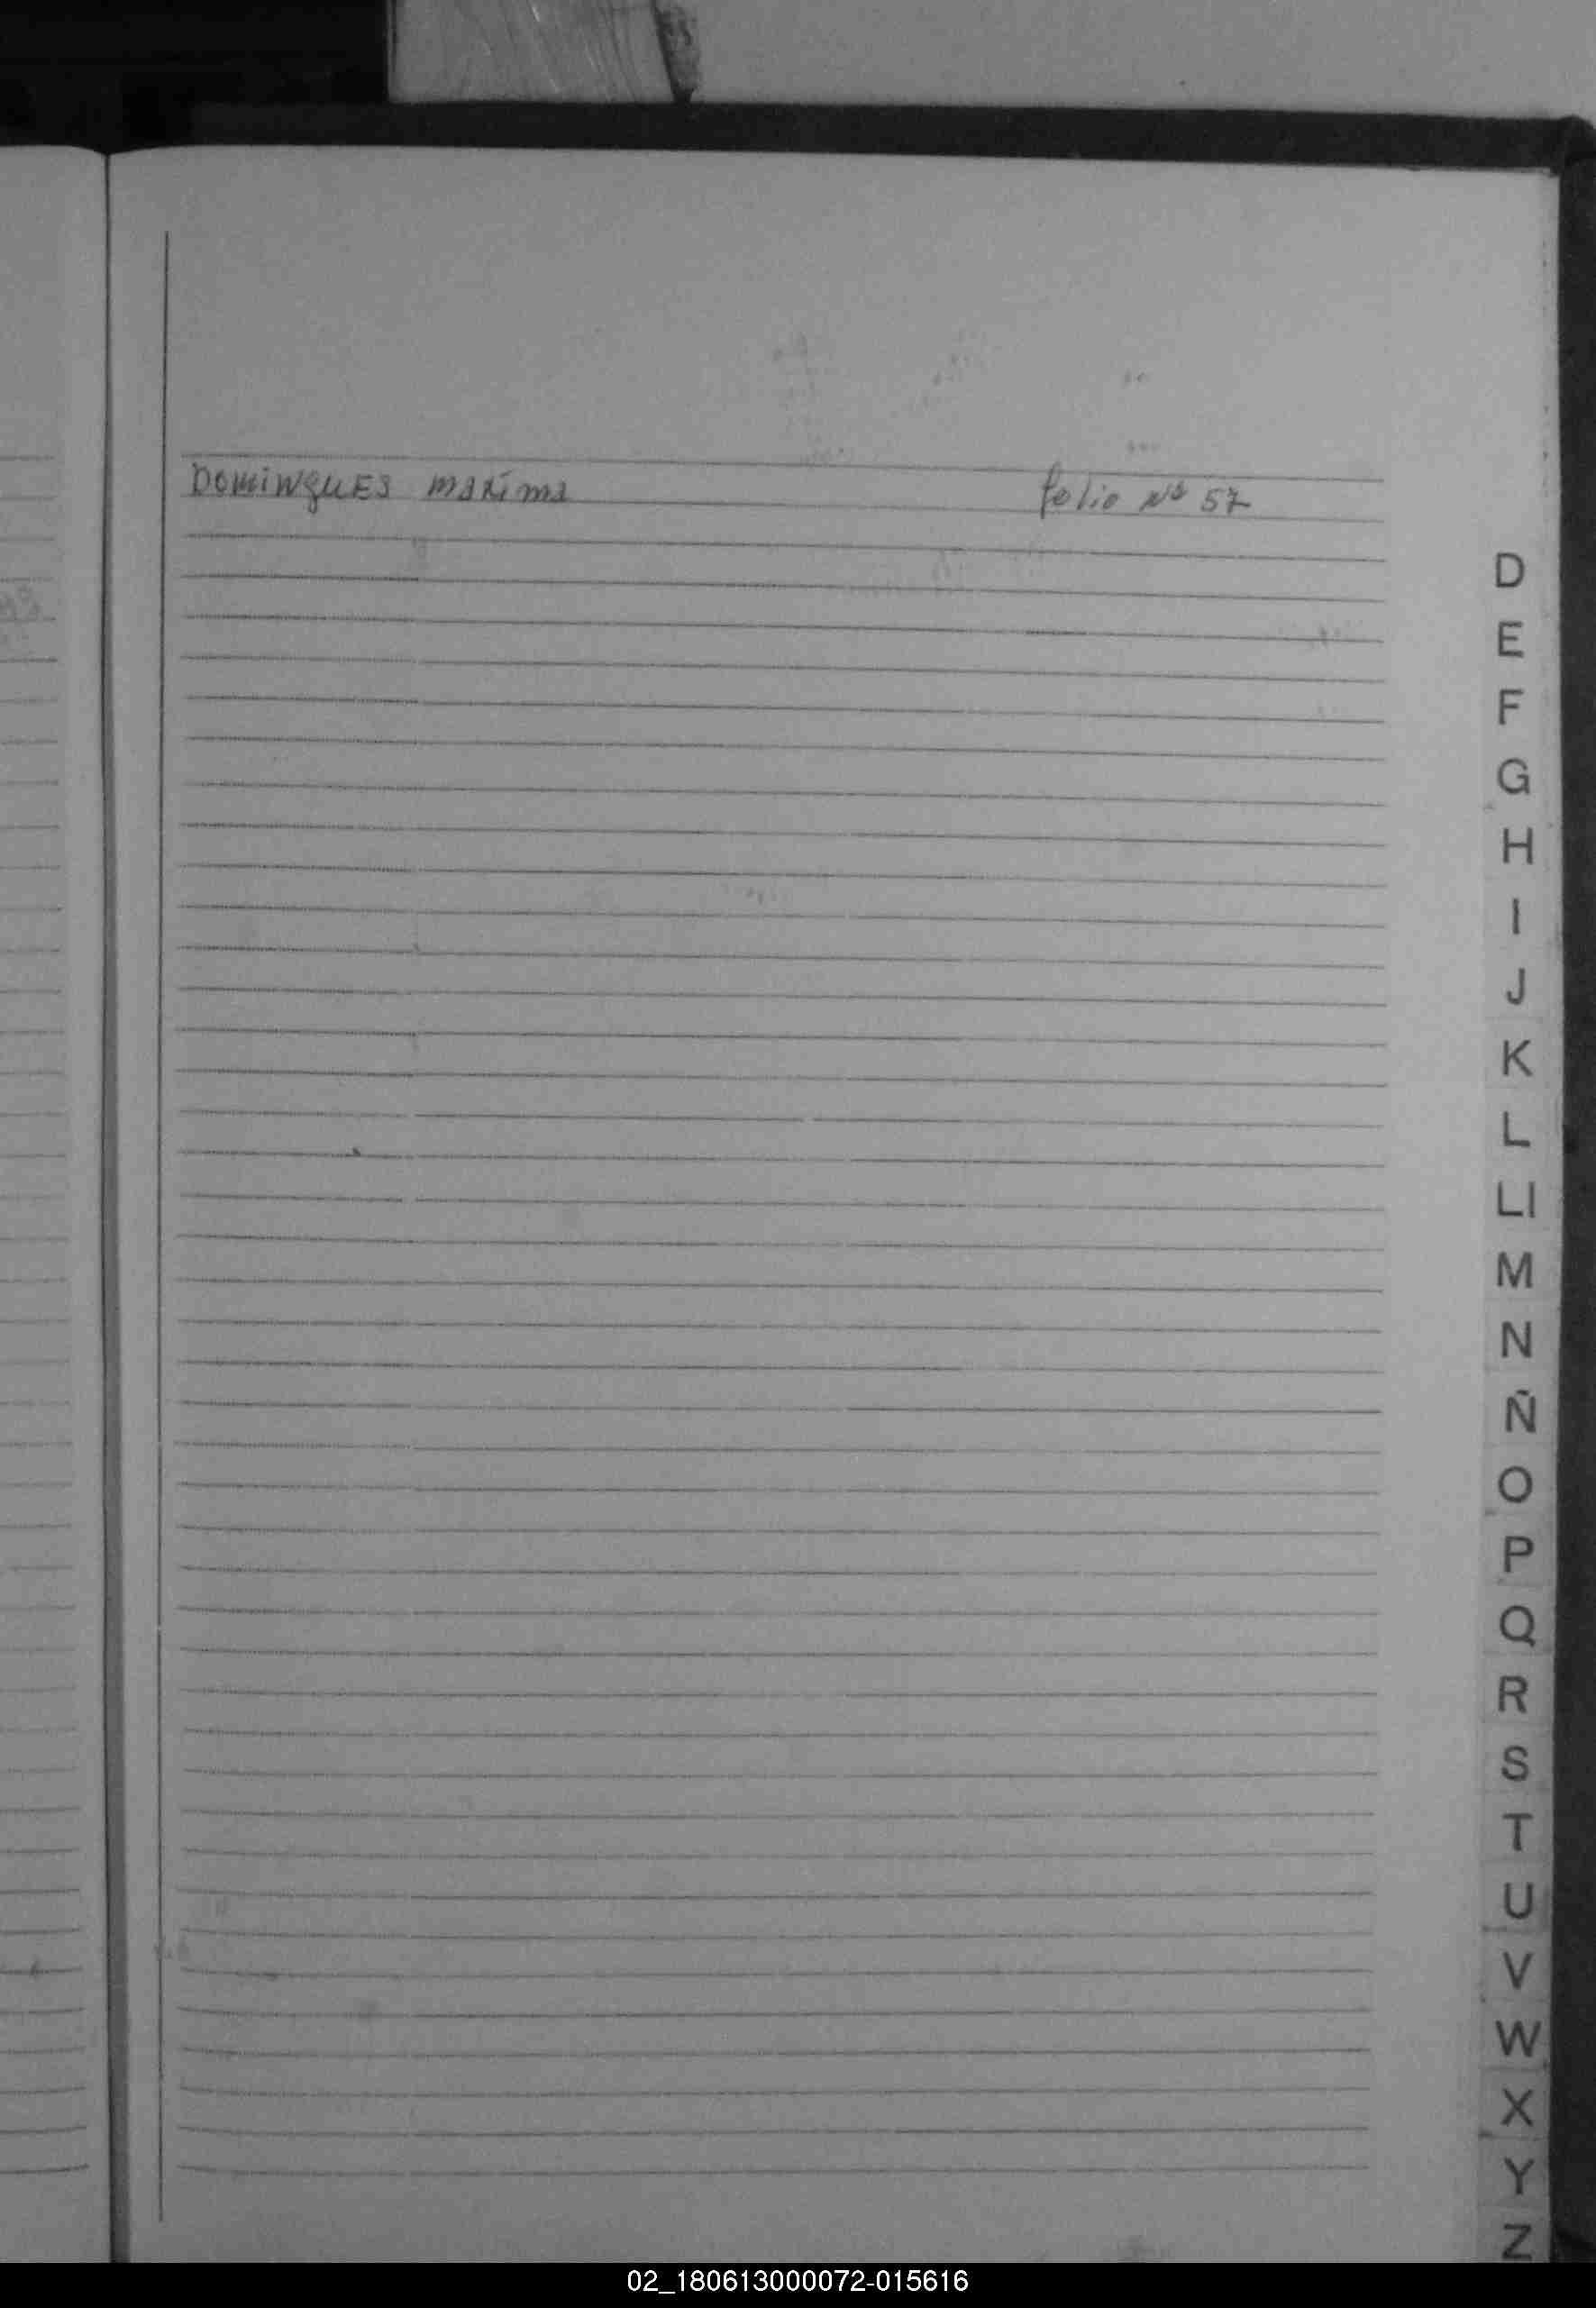 Domingues maxima folio Nº 57
D
E
F
G
H
I
J
K
L
Ll
M
N
Ñ
O
P
Q
R
S
T
U
V
W
X
Y
Z
02_180613000072-015616